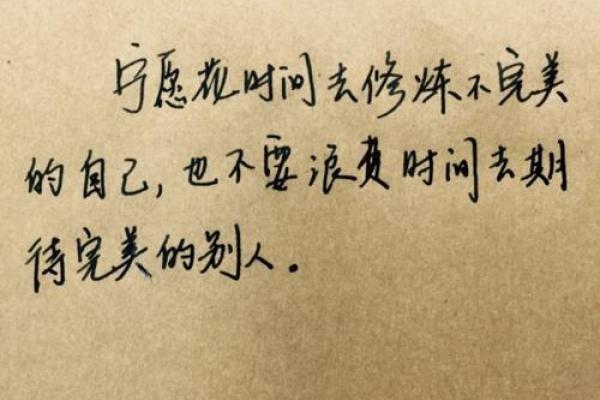 宁愿花时间去修炼不完美
的自己,也不要浪费时间去期
待完美的别人。